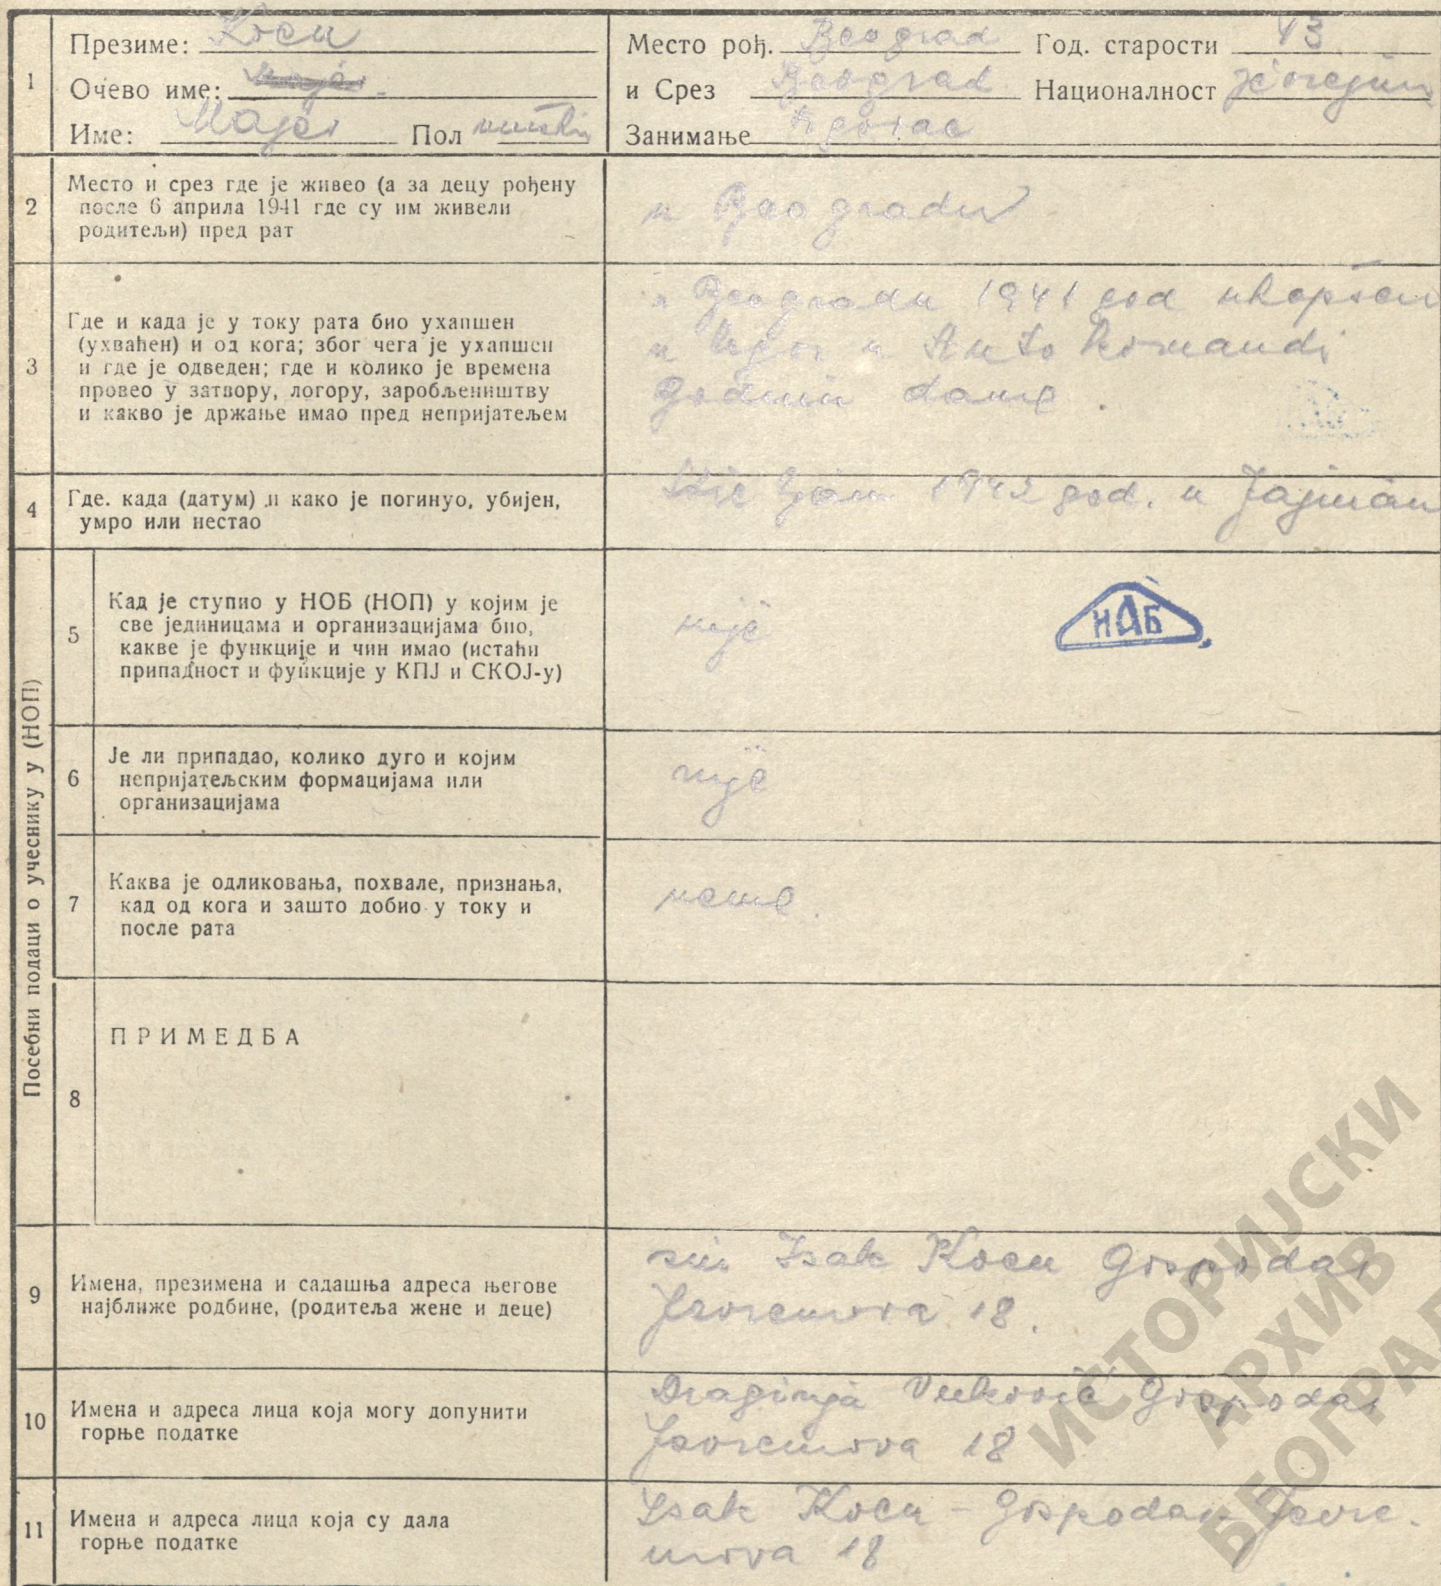 1
Презиме: Коен
Очево име:
Име: Мајер Пол мушки
Место рођ. Beograd Год. старости 43
и Срез Beograd Националност Jevrejin
Занимање
2
Место и срез где је живео (а за децу рођену
после 6 априла 1941 где су им живели
родитељи) пред рат
u Beogradu
3
Где и када је у току рата био ухапшен
(ухваћен) и од кога; због чега је ухапшен
и где је одведен; где и колико је времена
провео у затвору, логору, заробљеништву
и какво је држање имао пред непријатељем
u Beogradu 1941 god uhapšen
u logor u Auto komandi
godinu dana.
4
Где. када (датум) и како је погинуо, убијен,
умро или нестао
1942 god. u Jajincu
Посебни подаци о учеснику у (НОП)
5
Кад је ступио у НОБ (НОП) у којим је
све јединицама и организацијама био,
какве је функције и чин имао (истаћи
припадност и функције у КПЈ и СКОЈ-у)
nije
НАБ
6
Је ли припадао, колико дуго и којим
непријатељским формацијама или
организацијама
nije
7
Каква је одликовања, похвале, признања,
кад од кога и зашто добио у току и
после рата
nema.
8
ПРИМЕДБА
9
Имена, презимена и садашња адреса његове
најближе родбине, (родитеља жене и деце)
sin Isak Koen Gospodar
Jevremova 18.
10
Имена и адреса лица која могу допунити
горње податке
Draginja Vuković Gospodar
Jevremova 18
11
Имена и адреса лица која су дала
горње податке
Isak Koen - Gospodar Jevre-
mova 18
ИСТОРИЈСКИ
АРХИВ